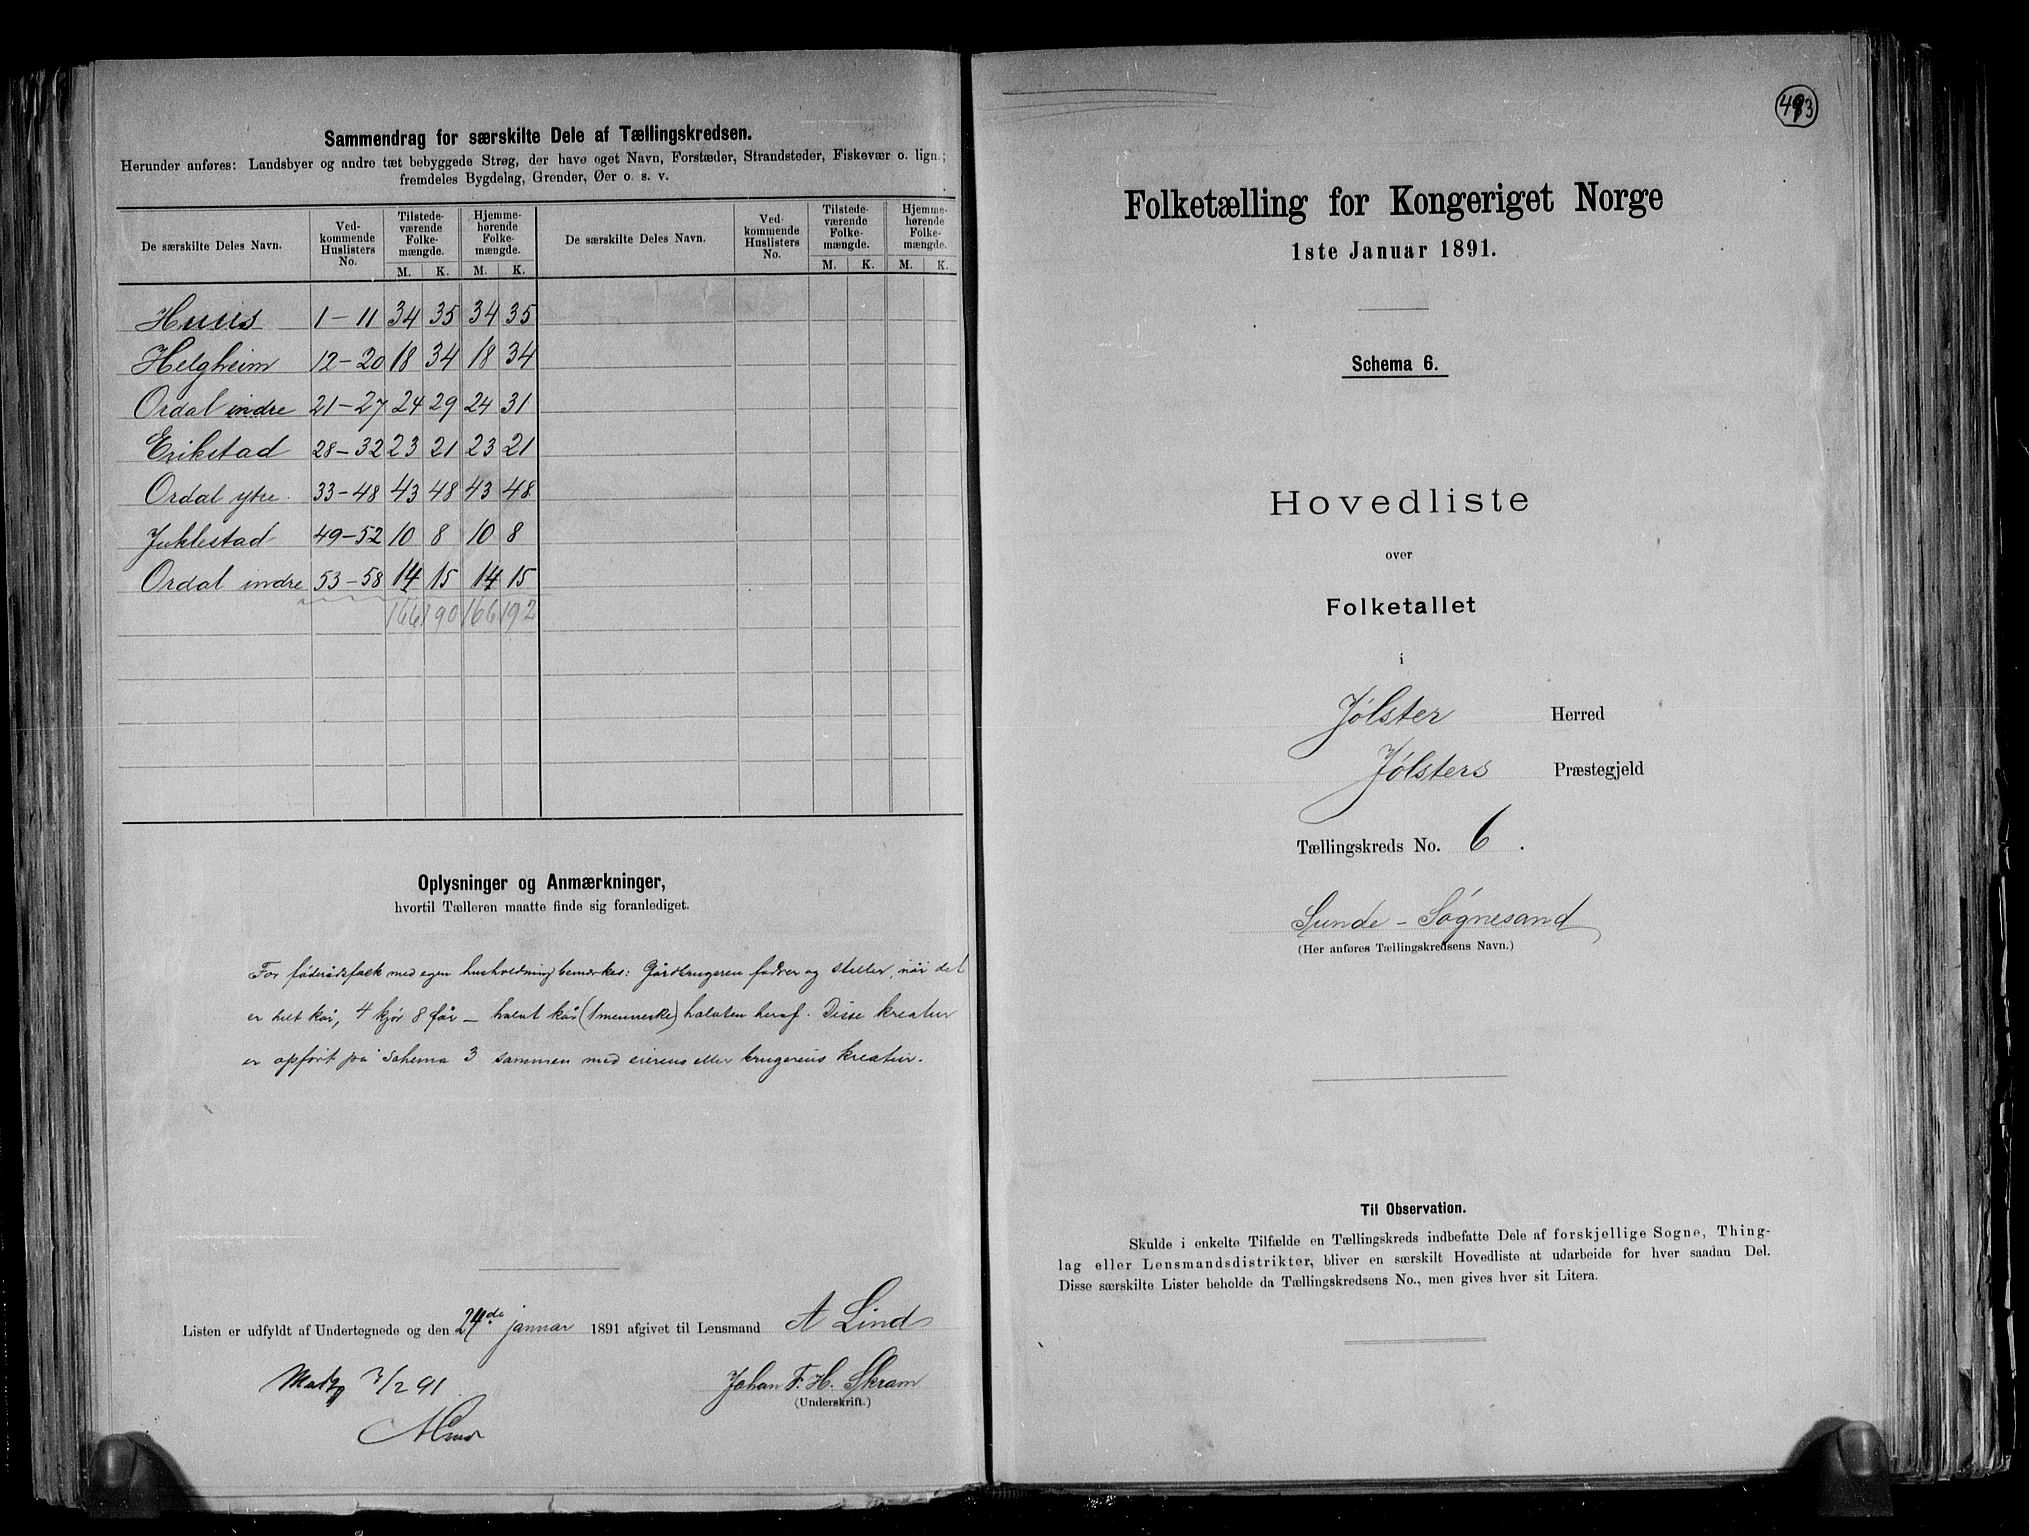 Sammendrag for særskilte Dele af Tællingskredsen.
Herunder anføres: Landsbyer og andre tæt bebyggede Strøg, der have eget Navn, Forstæder, Strandsteder, Fiskevær o. lign.;
fremdeles Bygdelag, Grender, Øer o. s. v.
De særskilte Deles Navn. Ved-kommende Huslisters No. Tilstede-værende Folke-mængde. Hjemme-hørende Folke-mængde. De særskilte Deles Navn. Ved-kommende Huslisters No. Tilstede-værende Folke-mængde. Hjemme-hørende Folke-mængde.
M. K. M. K. M. K. M. K.
Huus 1-11 34 35 34 35
Helgheim 12-20 18 34 18 34
Ordal indre 21-27 24 29 24 31
Erikstad 28-32 23 21 23 21
Ordal ytre 33-48 43 48 43 48
Juklestad 49-52 10 8 10 8
Ordal indre 53-58 14 15 14 15
166 190 166 192
Oplysninger og Anmærkninger,
hvortil Tælleren maatte finde sig foranlediget.
For føderådsfolk med egen husholdning bemerkes: Gårdbrugeren fodrer og steller, når det
er helt kår, 4 kjør 8 får – halvt kår (1 menneske) halvten heraf. Disse kreatur
er opført på Schema 3 sammen med eierens eller brugerens kreatur.
Listen er udfyldt af Undertegnede og den 24de januar 1891 afgivet til Lensmand A Lind
Johan F. H. Skram
(Underskrift.)
3/2 91
493
Folketælling for Kongeriget Norge
1ste Januar 1891.
Schema 6.
Hovedliste
over
Folketallet
i
Jølster Herred
Jølsters Præstegjeld
Tællingskreds No. 6.
Sunde - Søgnesand
(Her anføres Tællingskredsens Navn.)
Til Observation.
Skulde i enkelte Tilfælde en Tællingskreds indbefatte Dele af forskjellige Sogne, Thing-
lag eller Lensmandsdistrikter, bliver en særskilt Hovedliste at udarbeide for hver saadan Del.
Disse særskilte Lister beholde da Tællingskredsens No., men gives hver sit Litera.